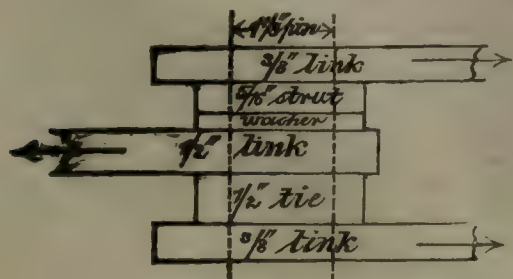 pin
3/8" link
5/16" strut
washer
1/2" link
1/2" tie
3/8" link